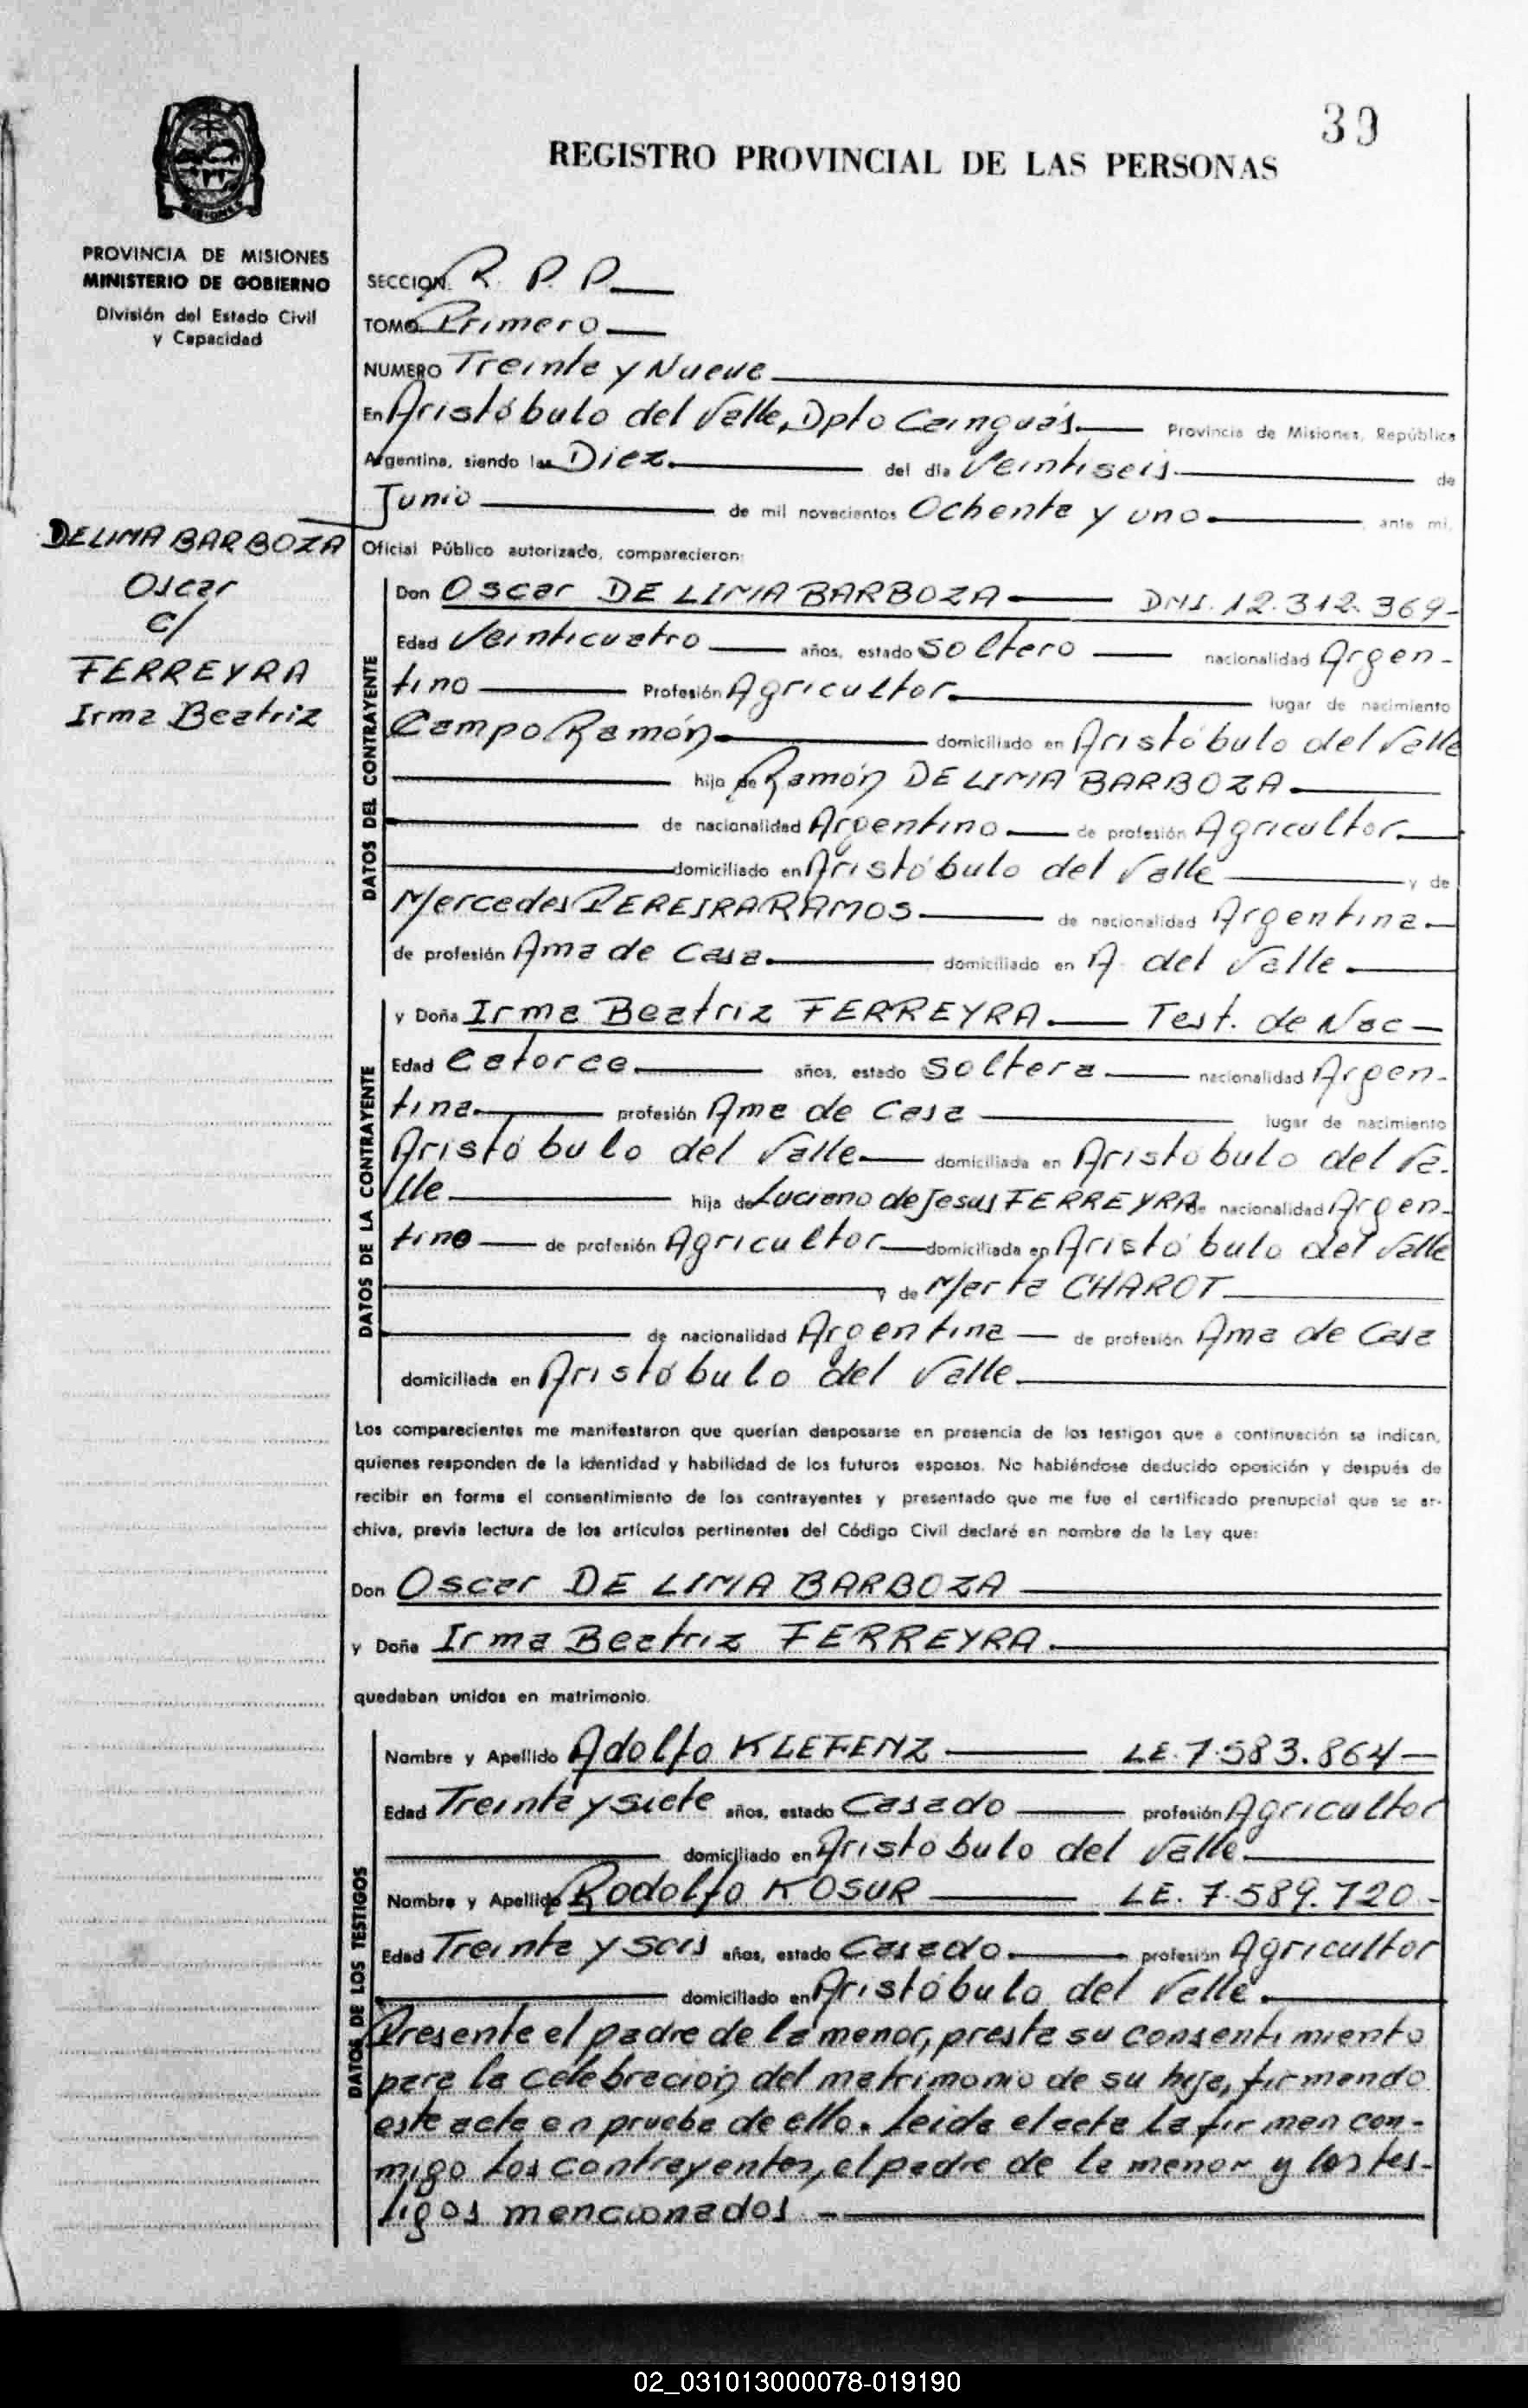 39
REGISTRO PROVINCIAL DE LAS PERSONAS
MISIONES
PROVINCIA DE MISIONES
MINISTERIO DE GOBIERNO
División del Estado Civil
y Capacidad
SECCION R. P. P.
TOMO Primero
NUMERO Treinta y Nueve
En Aristóbulo del Valle, Dpto Cainguás. Provincia de Misiones, República
Argentina, siendo las Diez. del día Veintiseis. de
Junio de mil novecientos Ochenta y uno. ante mí,
DE LIMA BARBOZA
Oscar
c/
FERREYRA
Irma Beatriz
Oficial Público autorizado, comparecieron:
DATOS DEL CONTRAYENTE
Don Oscar DE LIMA BARBOZA DNI. 12.312.369-
Edad Veinticuatro años, estado Soltero nacionalidad Argen-
tino Profesión Agricultor. lugar de nacimiento
Campo Ramón. domiciliado en Aristóbulo del Valle
hijo de Ramón DE LIMA BARBOZA.
de nacionalidad Argentino. de profesión Agricultor.
domiciliado en Aristóbulo del Valle y de
Mercedes PEREIRA RAMOS. de nacionalidad Argentina.
de profesión Ama de Casa. domiciliado en A. del Valle.
DATOS DE LA CONTRAYENTE
y Doña Irma Beatriz FERREYRA. Test. de Nac
Edad Catorce. años, estado Soltera. nacionalidad Argen-
tina. profesión Ama de Casa lugar de nacimiento
Aristóbulo del Valle. domiciliada en Aristóbulo del Va-
lle. hija de Luciano de Jesus FERREYRA de nacionalidad Argen-
tino de profesión Agricultor domiciliada en Aristóbulo del Valle
y de Marta CHAROT
de nacionalidad Argentina de profesión Ama de Casa
domiciliada en Aristóbulo del Valle.
Los comparecientes me manifestaron que querían desposarse en presencia de los testigos que a continuación se indican,
quienes responden de la identidad y habilidad de los futuros esposos. No habiéndose deducido oposición y después de
recibir en forma el consentimiento de los contrayentes y presentado que me fue el certificado prenupcial que se ar-
chiva, previa lectura de los artículos pertinentes del Código Civil declaré en nombre de la Ley que:
Don Oscar DE LIMA BARBOZA
y Doña Irma Beatriz FERREYRA.
quedaban unidos en matrimonio.
DATOS DE LOS TESTIGOS
Nombre y Apellido Adolfo KLEFENZ LE. 7.583.864
Edad Treinta y siete años, estado Casado profesión Agricultor
domiciliado en Aristobulo del Valle.
Nombre y Apellido Rodolfo KOSUR LE. 7.589.720-
Edad Treinta y seis años, estado Casado. profesión Agricultor
domiciliado en Aristóbulo del Valle.
Presente el padre de la menor, presta su consentimiento
para la celebración del matrimonio de su hija, firmando
este acta en prueba de ello. Leida el acta la firman con-
migo los contrayentes, el padre de la menor y los tes-
tigos mencionados.-
02_031013000078-019190